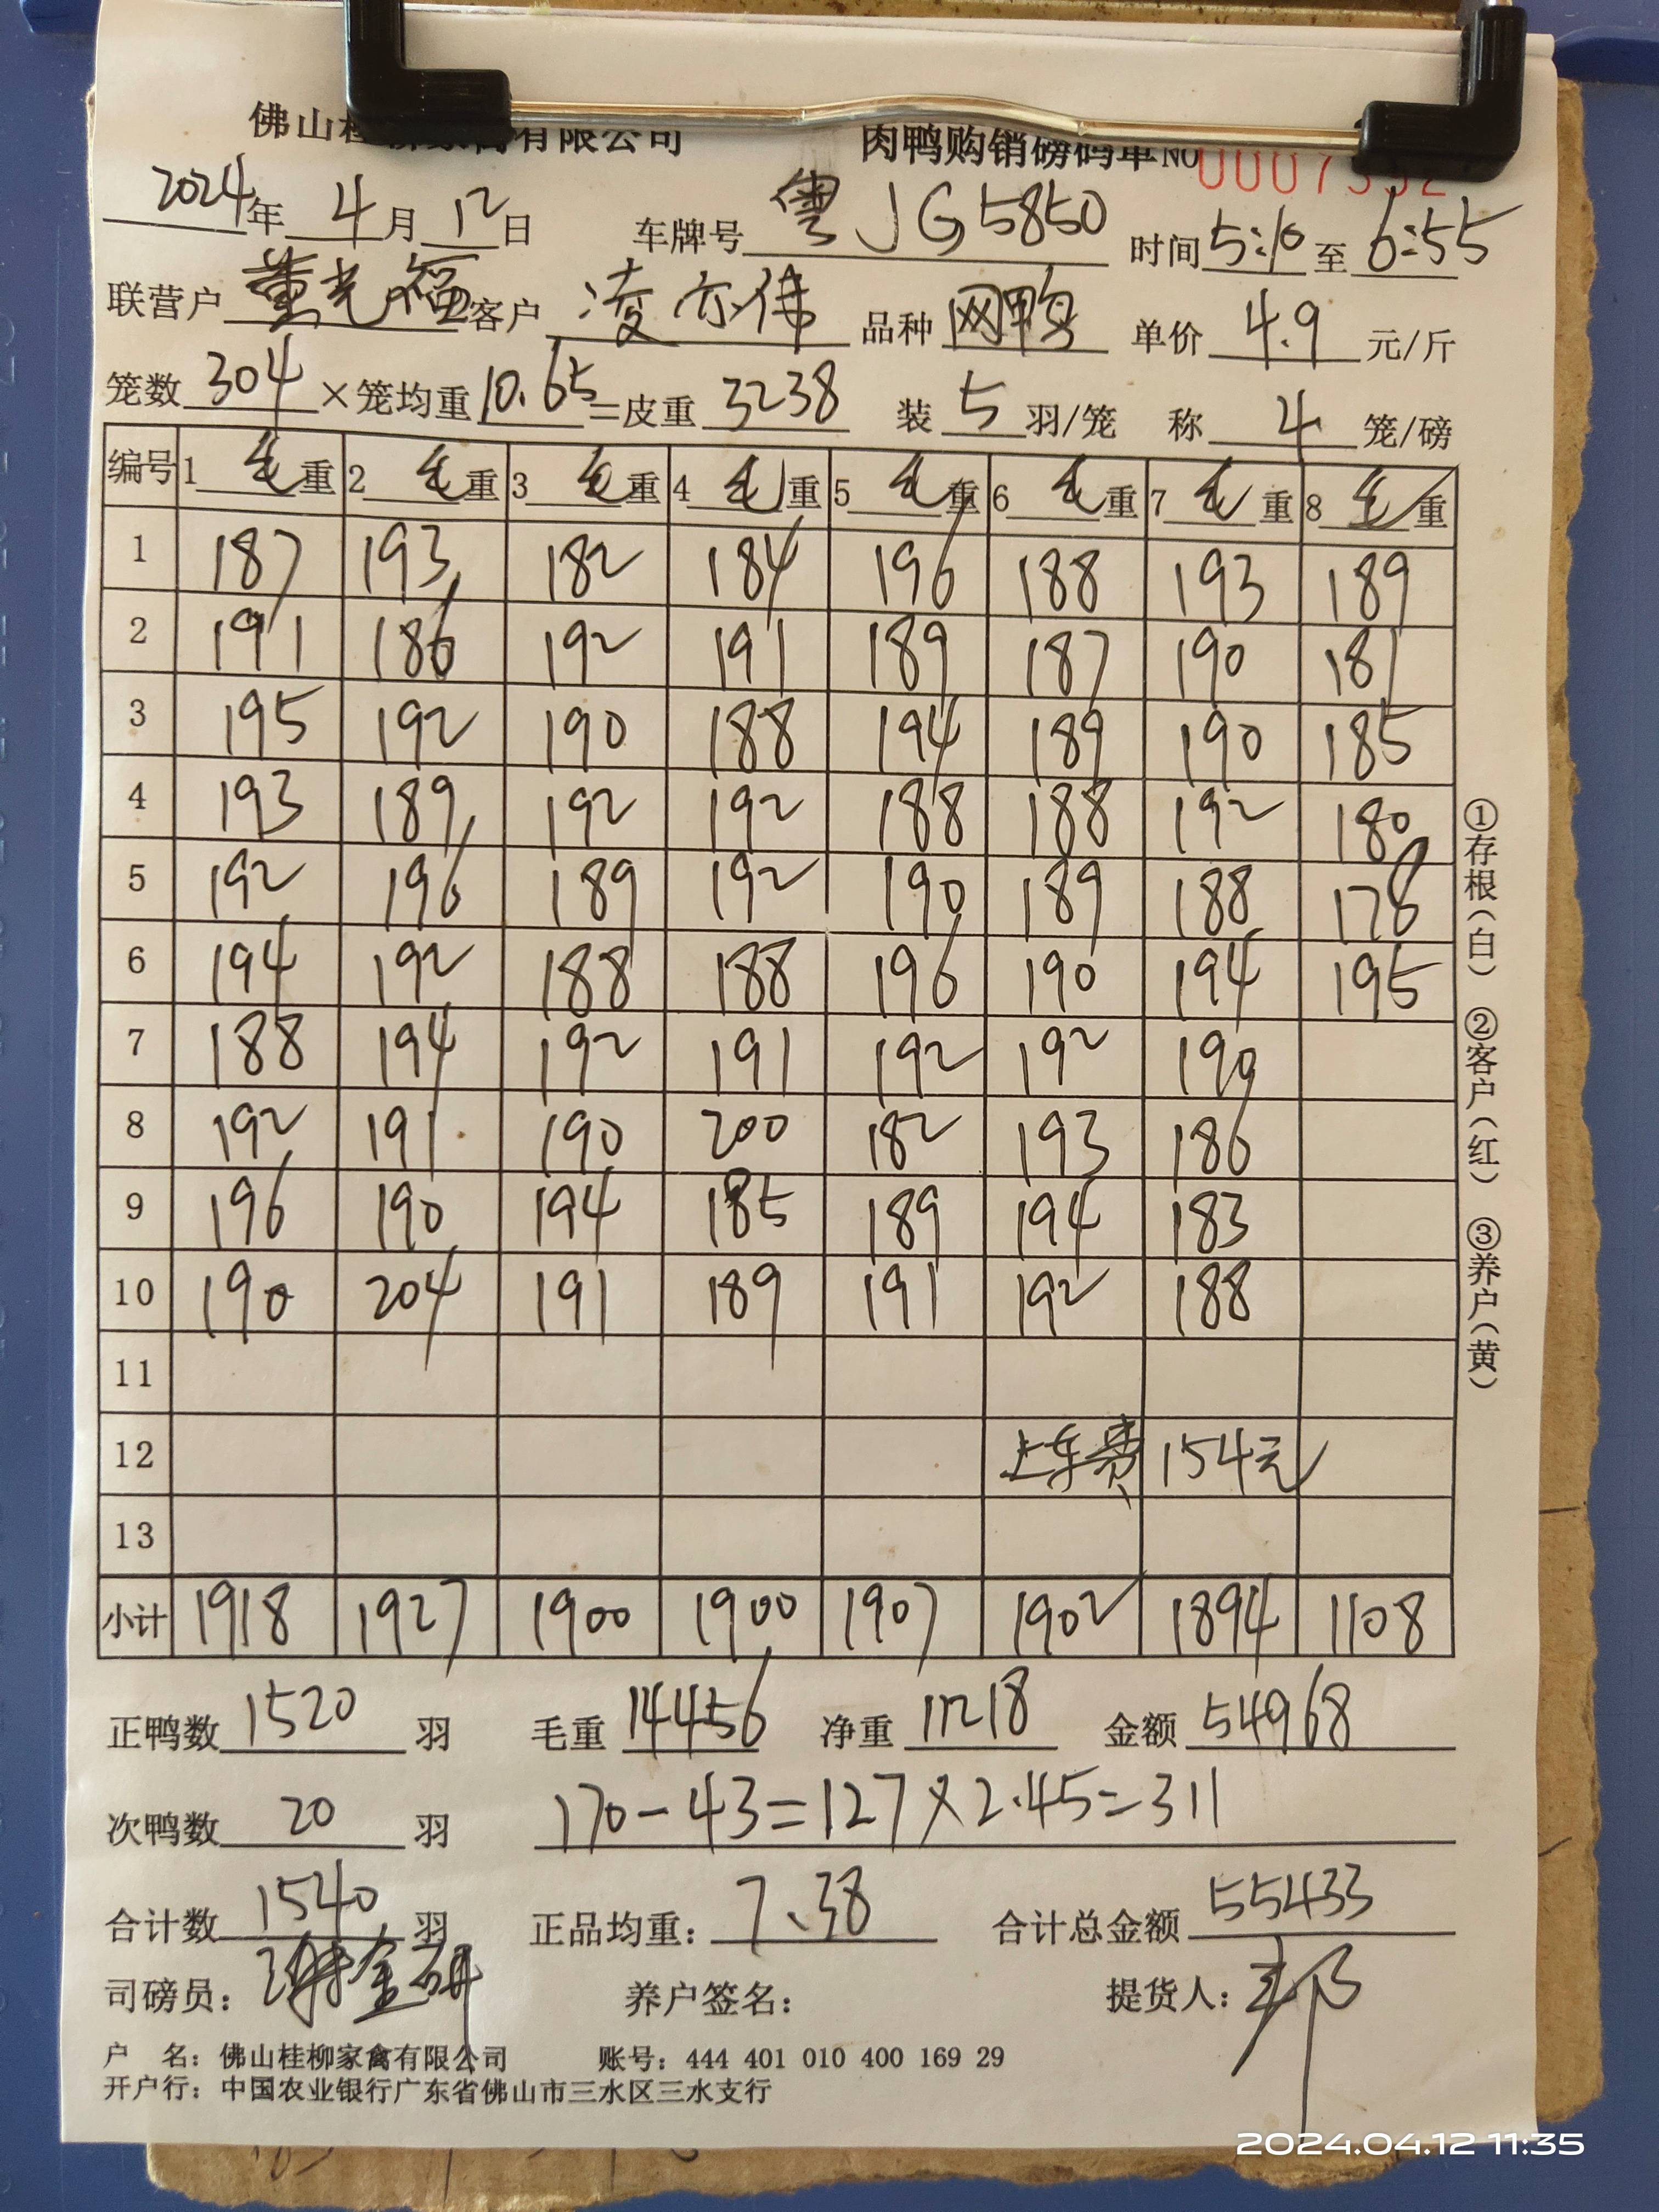 佛山桂柳家禽有限公司 肉鸭购销磅码单 NO
2024年 4月 12日 车牌号 粤JG5850 时间 5:10 至 6:55
联营户 董光福 客户 凌亦伟 品种 网鸭 单价 4.9 元/斤
笼数 304 ×笼均重 10.65 =皮重 3238 装 5 羽/笼 称 4 笼/磅
编号 1 毛重 2 毛重 3 毛重 4 毛重 5 毛重 6 毛重 7 毛重 8 毛重
1 187 193 182 184 196 188 193 189
2 191 186 192 191 189 187 190 181
3 195 192 190 188 194 189 190 185
4 193 189 192 192 188 188 192 180
5 192 196 189 192 190 189 188 178
6 194 192 188 188 196 190 194 195
7 188 194 192 191 192 192 190
8 192 191 190 200 182 193 186
9 196 190 194 185 189 194 183
10 190 204 191 189 191 192 188
11
12 上车费 154元
13
小计 1918 1927 1900 1900 1907 1902 1894 1108
正鸭数 1520 羽 毛重 14456 净重 11218 金额 54968
次鸭数 20 羽 170-43=127×2.45=311
合计数 1540 羽 正品均重: 7.38 合计总金额 55433
司磅员: 养户签名: 提货人:
户 名: 佛山桂柳家禽有限公司 账号: 444 401 010 400 169 29
开户行: 中国农业银行广东省佛山市三水区三水支行
①存根(白) ②客户(红) ③养户(黄)
2024.04.12 11:35